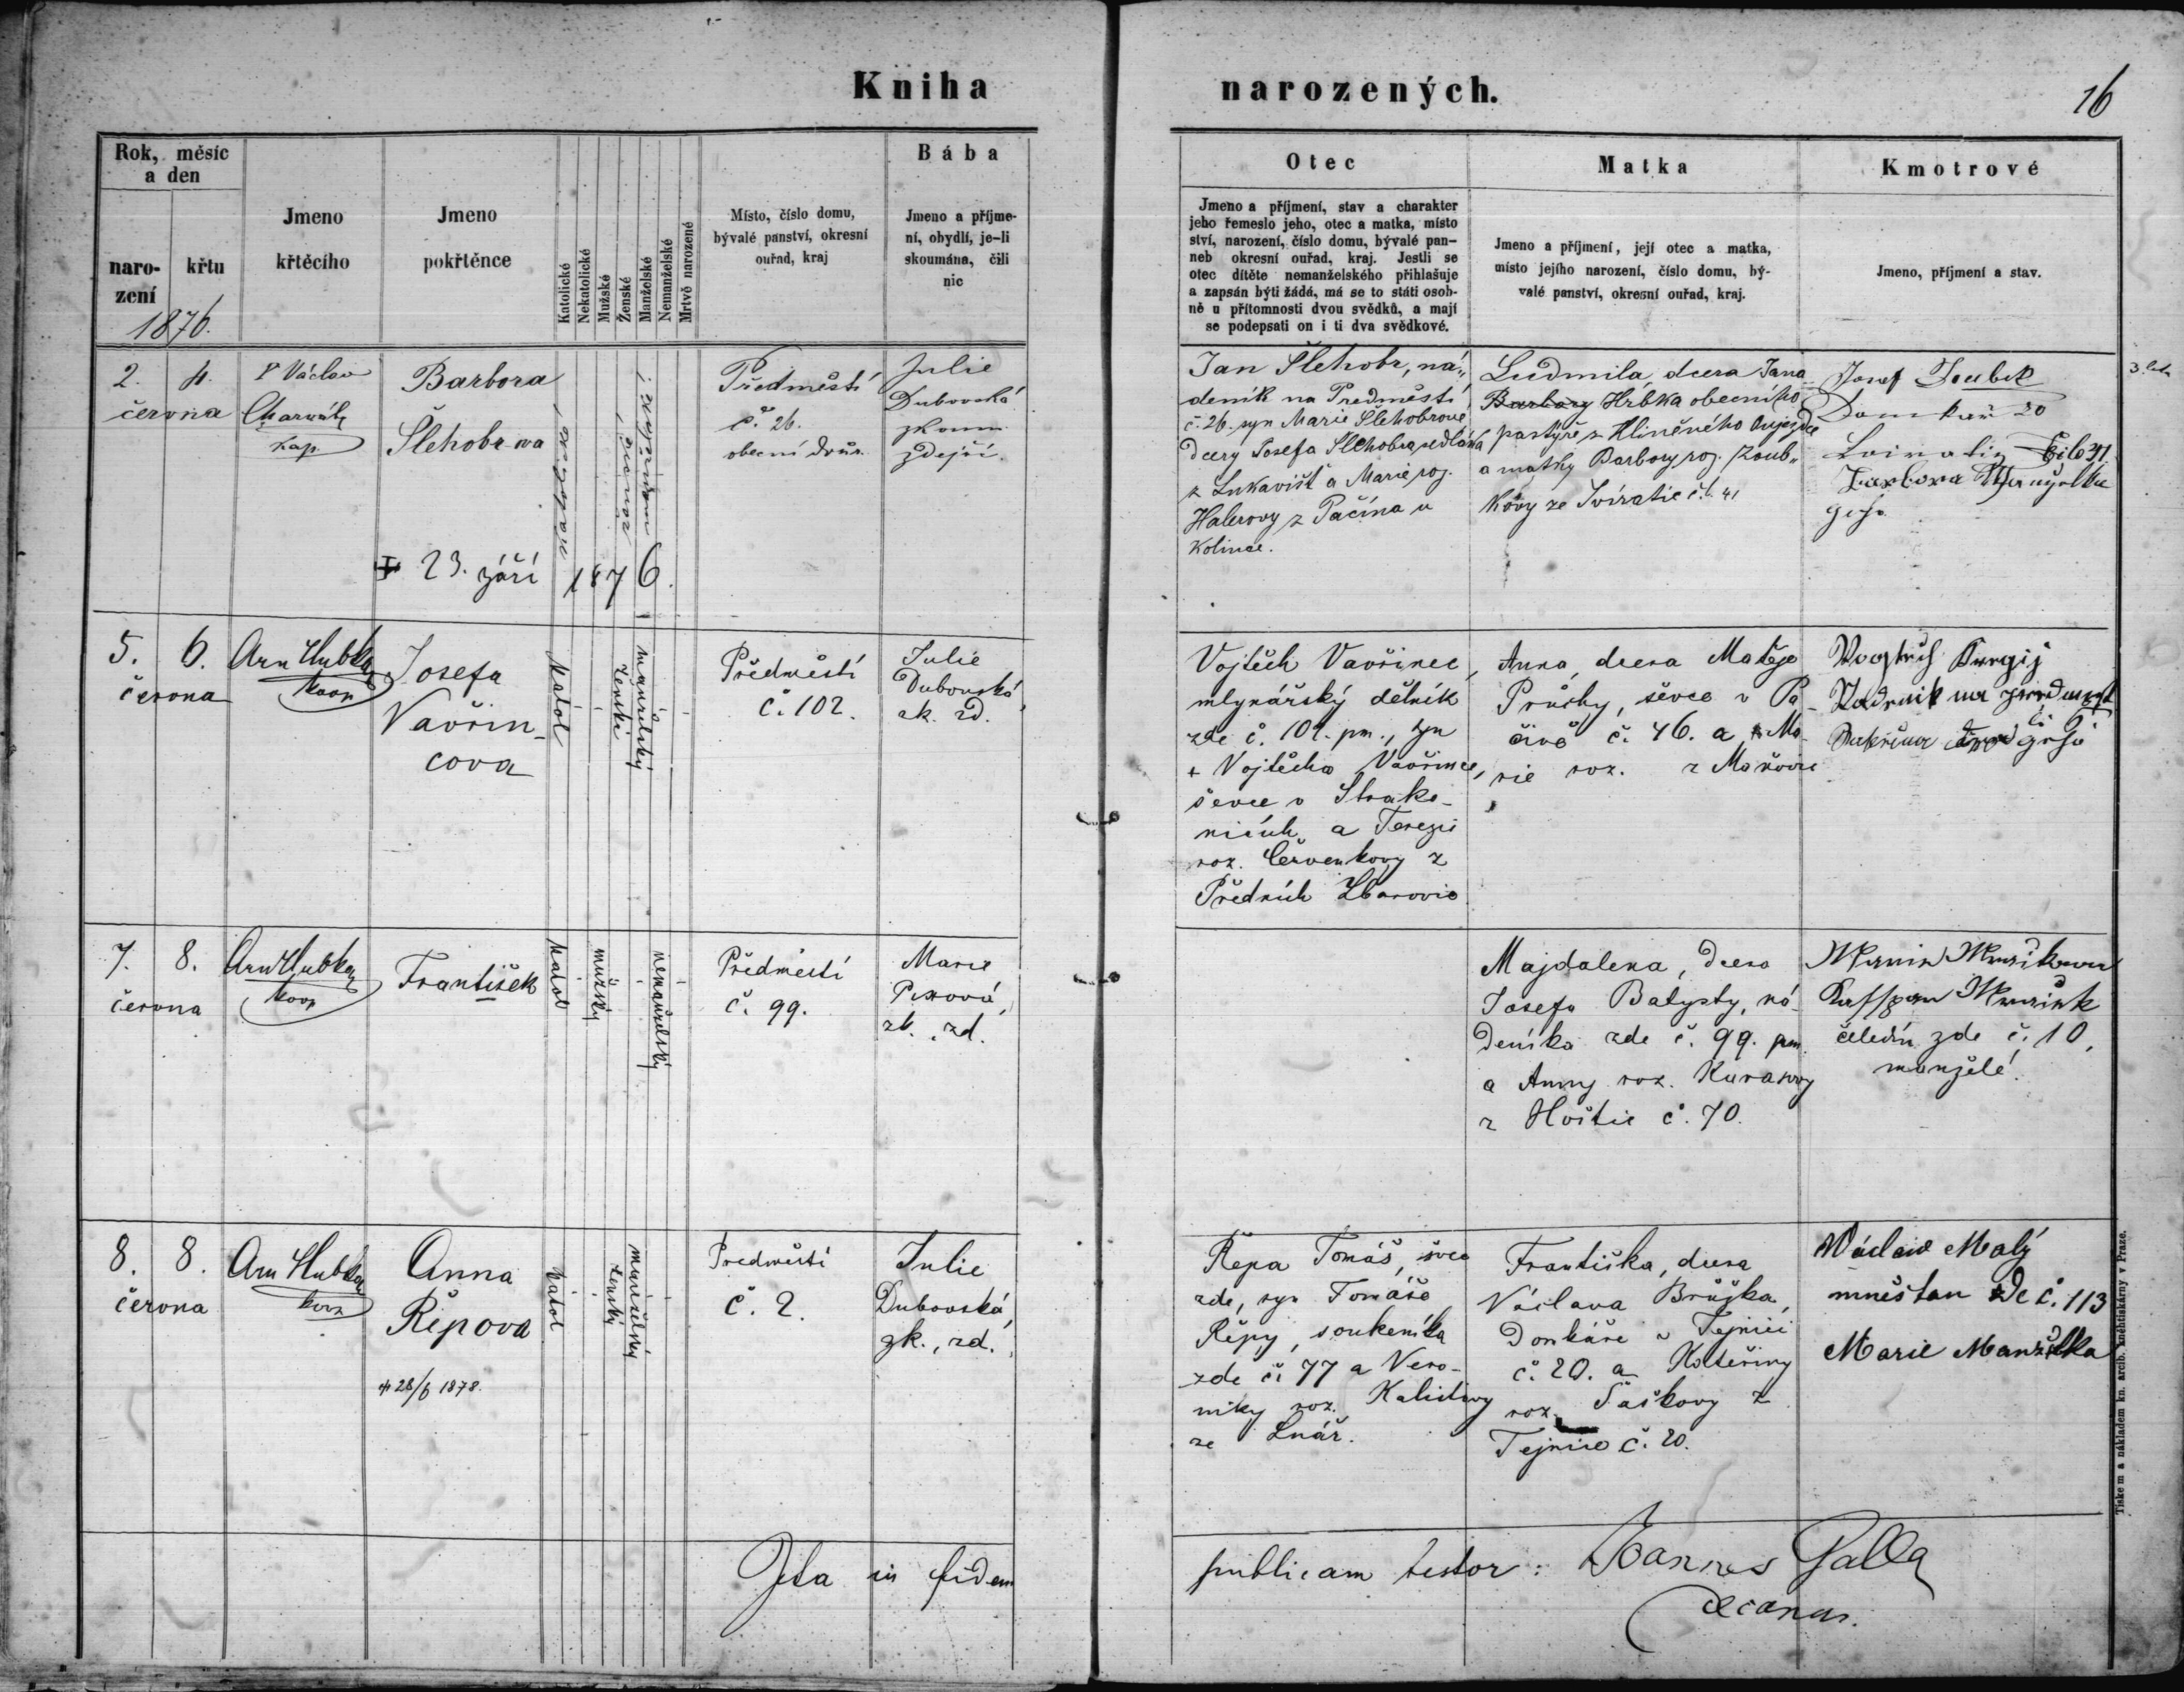 Kniha narozených.
16
Rok, měsíc
a den
naro-
zení
křtu
1876.
Jmeno
křtěcího
Jmeno
pokřtěnce
Katolické
Nekatolické
Mužské
Ženské
Manželské
Nemanželské
Mrtvě narozené
Místo, číslo domu,
bývalé panství, okresní
ouřad, kraj
Bába
Jmeno a příjme-
ní, obydlí, je-li
skoumána, čili
nic
Otec
Jmeno a příjmení, stav a charakter
jeho řemeslo jeho, otec a matka, místo
ství, narození, číslo domu, bývalé pan-
neb okresní ouřad, kraj. Jestli se
otec dítěte nemanželského přihlašuje
a zapsán býti žádá, má se to státi osob-
ně u přítomnosti dvou svědků, a mají
se podepsati on i ti dva svědkové.
Matka
Jmeno a příjmení, její otec a matka,
místo jejího narození, číslo domu, bý-
valé panství, okresní ouřad, kraj.
Kmotrové
Jmeno, příjmení a stav.
2. 4.
června
P Václav
Charvát
kap.
Barbora
Šlehobrova
23. září 1876.
Předměstí
č. 26.
obecní
Julie
Dubovská
zkoum.
zdejší.
Jan Šlehobr, ná-
deník na Předměstí
č. 26 syn Marie Šlehobrové
dcery Josefa Šlehobra sedláka
z Lukavišť a Marie roz.
Halerovy z Pačína u
Kolince.
Ludmila, dcera Jana
Barbory Hrbka obecního
pastýře z Hliněného Oujezdce
a matky Barbory roz. Zoub-
kovy ze Svíratic č. 41
Josef Zoubek
Domkař 20
5. 6.
června
Arn Hubka
koop
Josefa
Vavřin-
cova
katol
ženský
manželský
Předměstí
č. 102.
Julie
Dubovská,
zk. zd.
Vojtěch Vavřinec,
mlynářský dělník
zde č. 102. pm., syn
+ Vojtěcha Vavřince,
ševce v Strako-
nicích a Terezie
roz. Červenkovy z
Předních Zborovic
Anna, dcera Matěje
Průchy, ševce v Pa-
čivě č. 46. a Ma-
rie roz. z Maňovic
7. 8.
června
Arn Hubka
koop
František
katol
mužský
nemanželský
Předměstí
č. 99.
Marie
zk. zd.
Majdalena, dcera
Josefa Batysty, ná-
deníka zde č. 99. pm.
a Anny roz.
z Hoštic č. 70.
čeledín zde č. 10,
manželé.
8. 8.
června
Arn Hubka
koop
Anna
Řepova
28/6 1878.
katol
ženský
manželský
Předměstí
č. 2.
Julie
Dubovská,
zk., zd.
Řepa Tomáš, švec
zde, syn Tomáše
Řepy, soukeníka
zde č. 77 a Vero-
niky roz.
ze Lnář.
Františka, dcera
Václava Brůžka,
Domkáře v Tejnici
č. 20. a Kateřiny
roz. Šaškovy z
Tejnice č. 20.
Václav Malý
měštan zde č. 113
Marie Manželka
Ita in fidem
publicam testor: Joannes Palla
decanus.
Tiskem a nákladem kn. arcib. knihtiskárny v Praze.